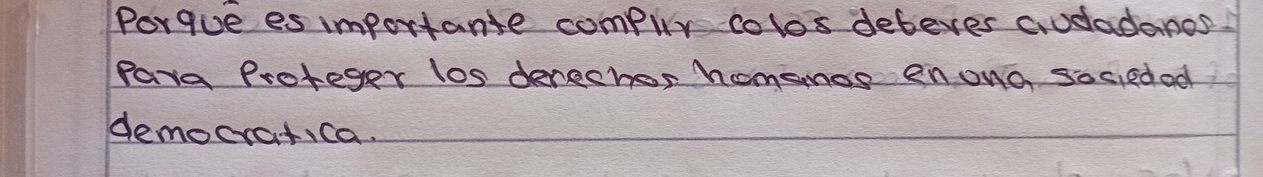 Porquē es importante complir colos deberes ciudadanos
Para Proteger los derechos homanos en ona sociedad
democratica.